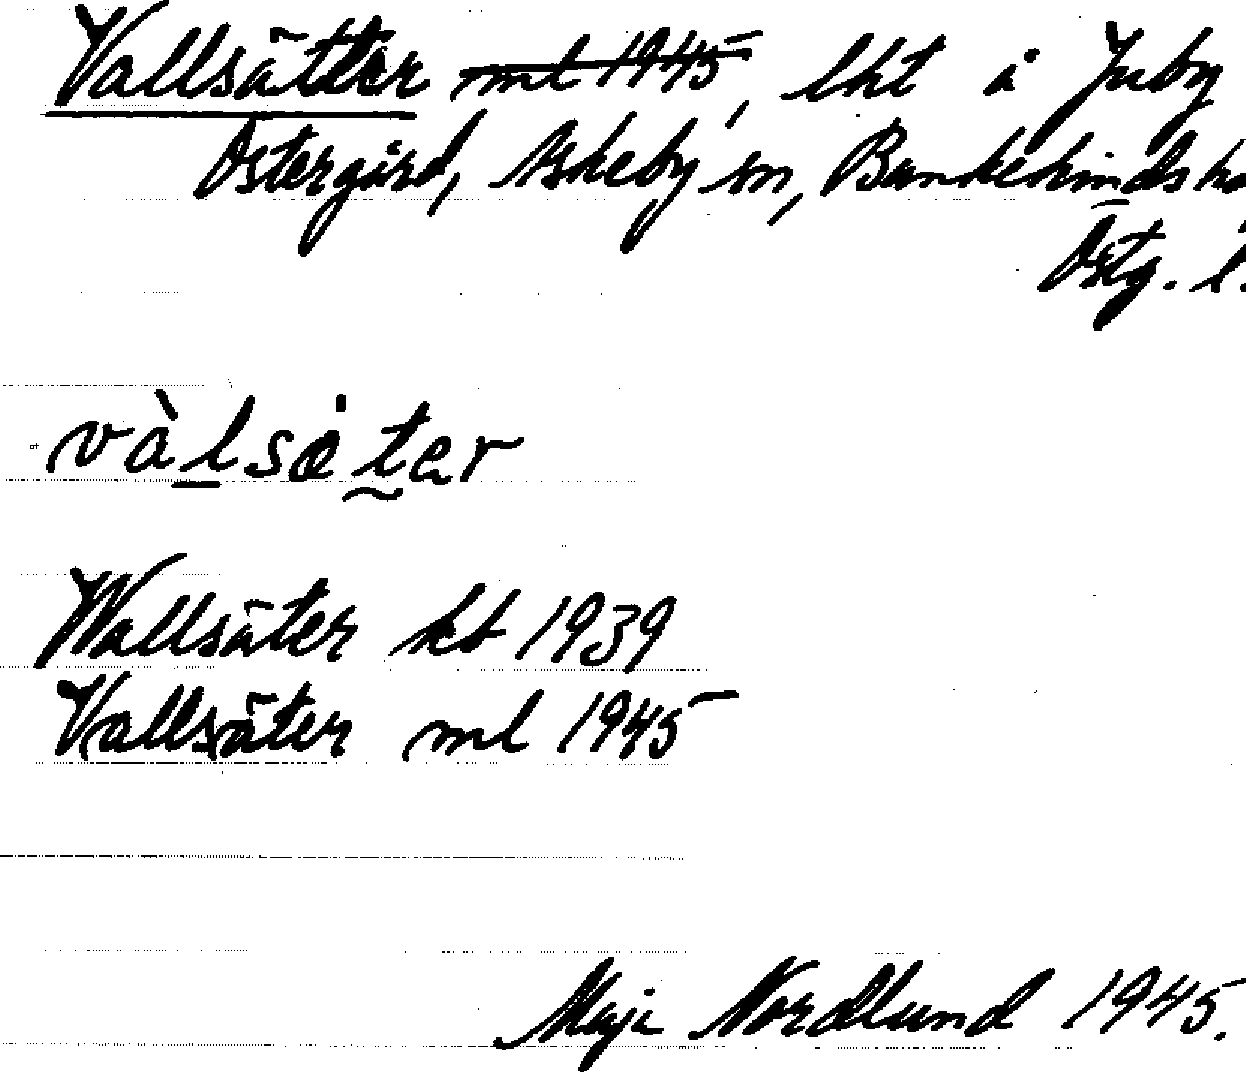 Vallsätter ml 1945, lht å Juby
Östergård, Askeby sn, Bankekinds h
Östg. l.
vàlsȧter
Wallsäter kt 1939
Vallsäter ml 1945
Maja Nordlund 1945.